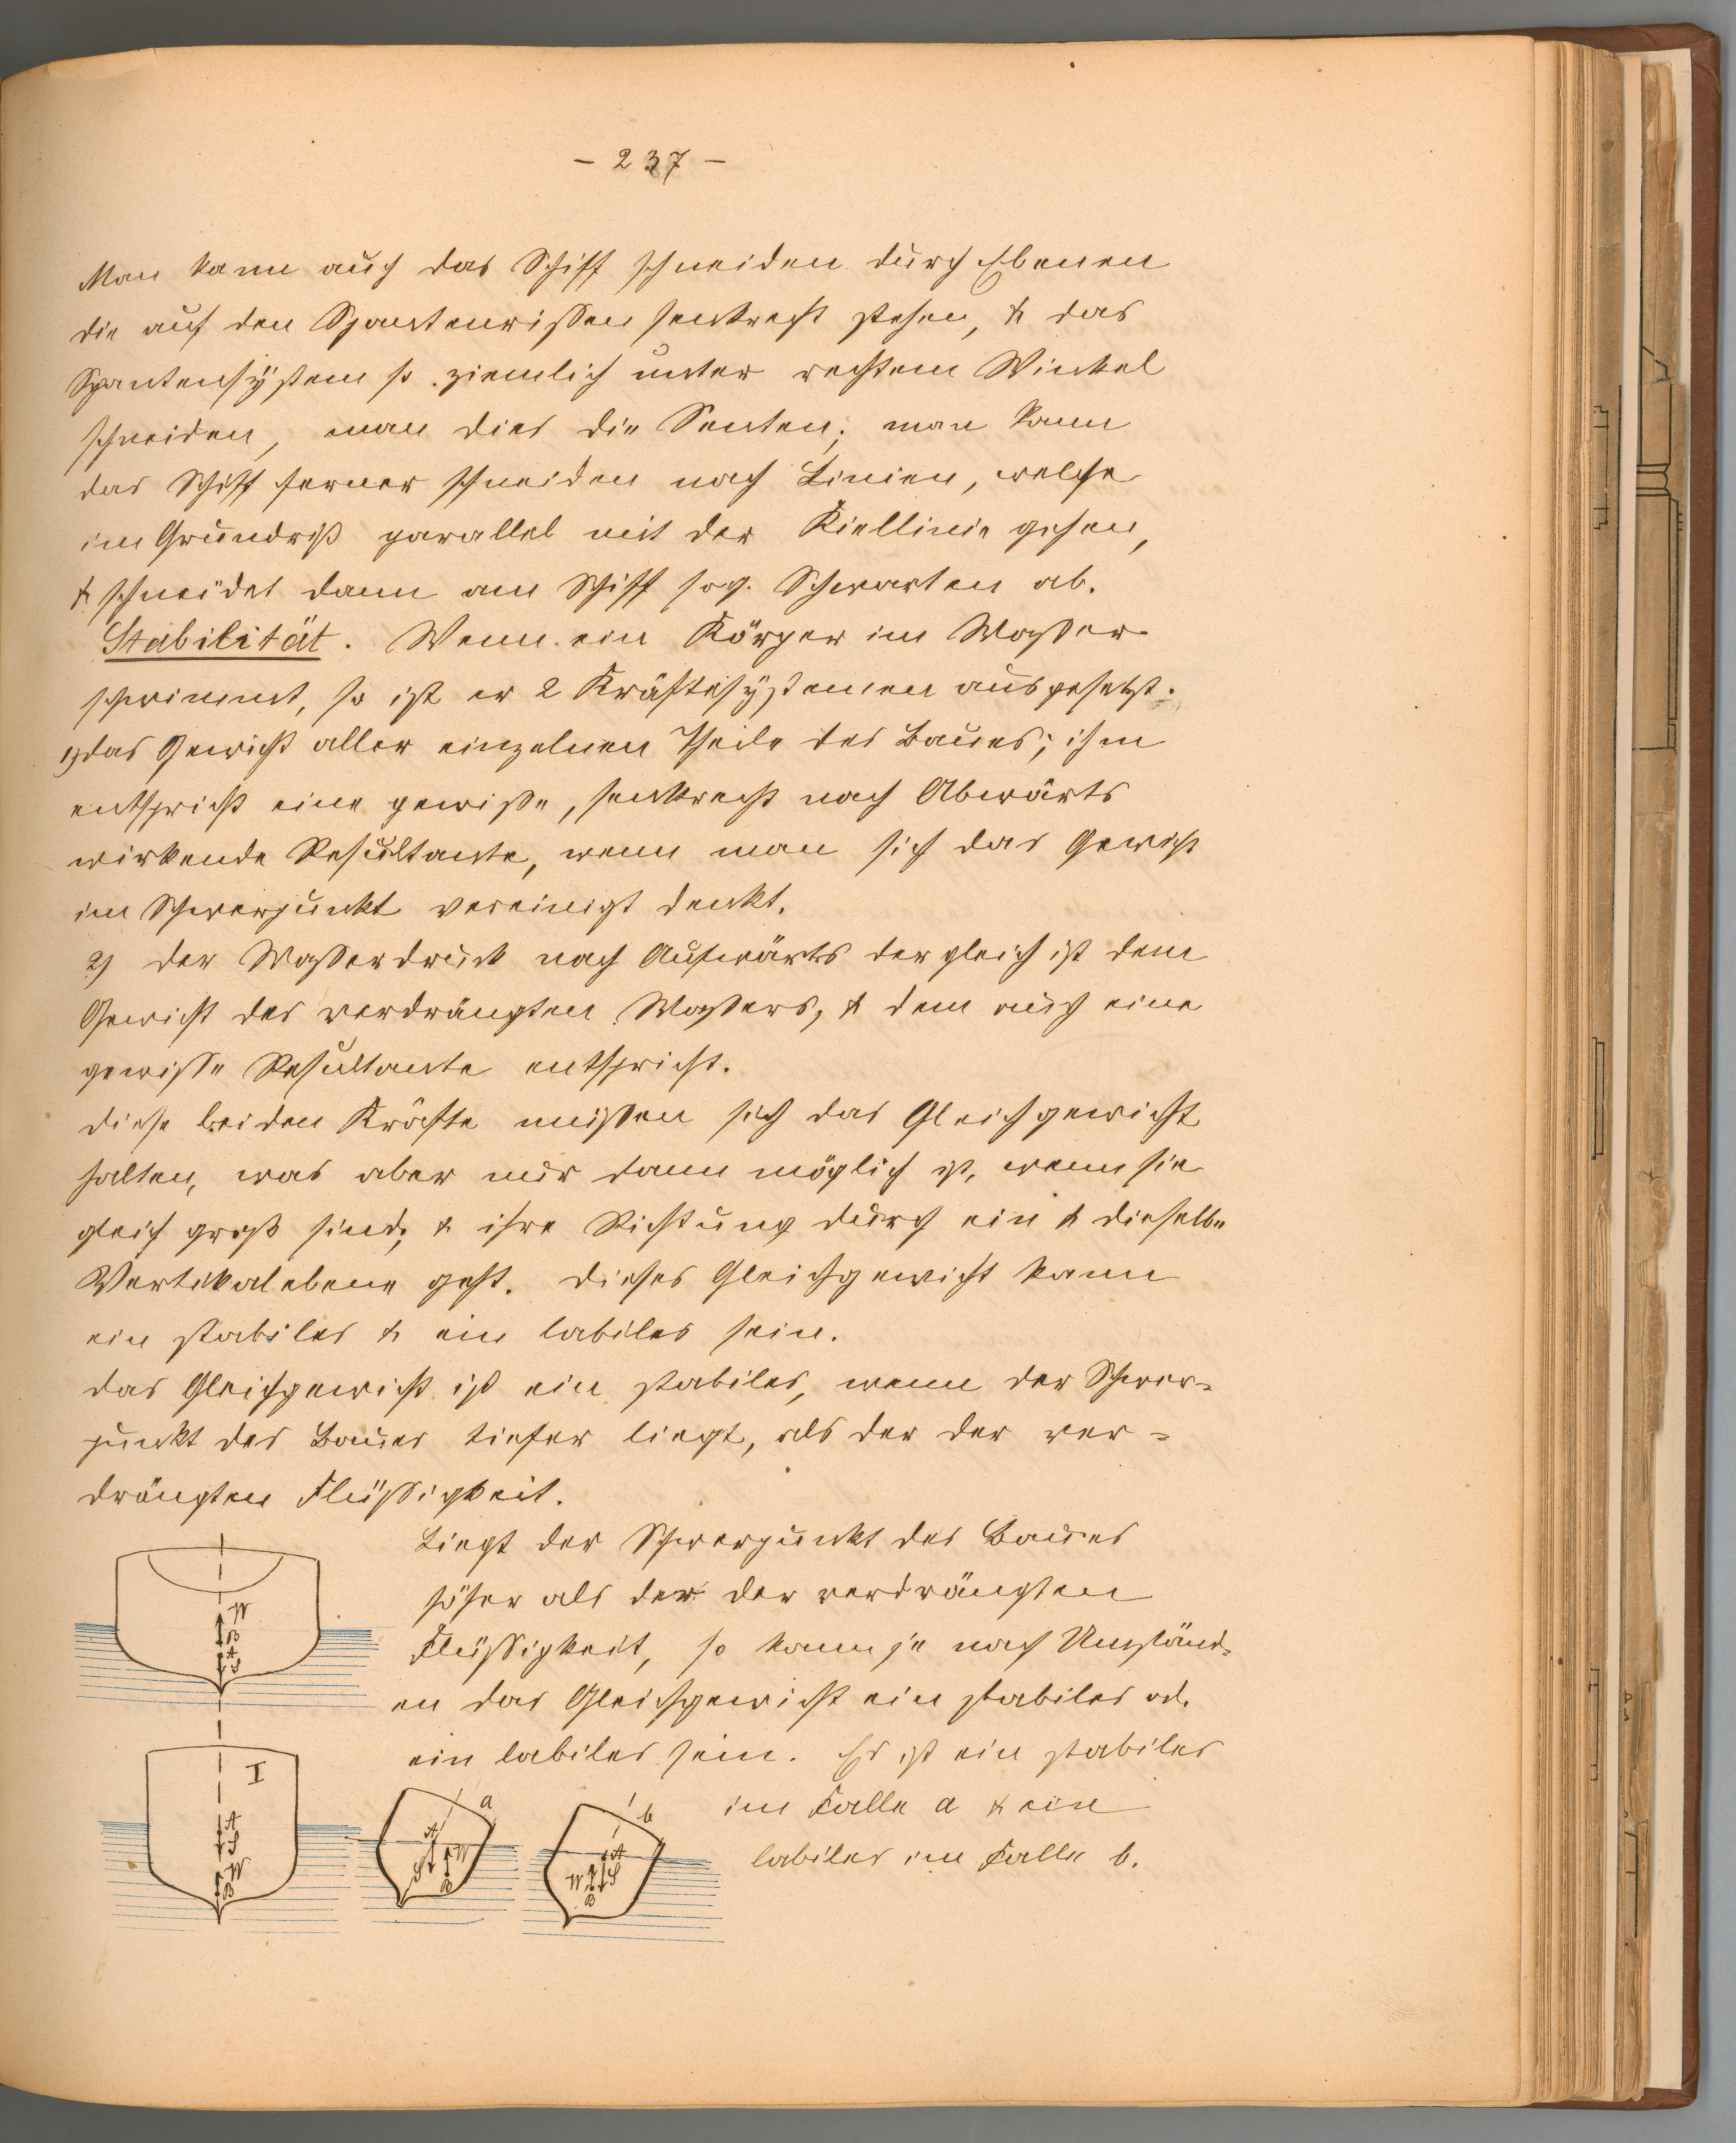 - 237 -
Man kann auch das Schiff schneiden durch Ebenen
die auf den Spantenrissen senkrecht stehen, & das
Spantensystem so ziemlich unter rechtem Winkel
schneiden, man dies die Senten; man kann
das Schiff ferner schneiden nach Linien, welche
im Grundriß parallel mit der Kiellinie gehen,
& schneidet dann am Schiff sog. Schwarten ab.
Stabilität. Wenn ein Körper im Wasser
schwimmt, so ist er 2 Kräftesystemen ausgesetzt.
1) das Gewicht aller einzelnen Theile des Baues; ihm
entspricht eine gewisse, senkrecht nach Abwärts
wirkende Resultante, wenn man sich das Gewicht
im Schwerpunkt vereinigt denkt.
2) der Wasserdruck nach Aufwärts der gleich ist dem
Gewicht des verdrängten Wassers, & dem auch eine
gewisse Resultante entspricht.
diese beiden Kräfte müssen sich das Gleichgewicht
halten, was aber nur dann möglich ist, wenn sie
gleich groß sind, & ihre Richtung durch ein & dieselbe
Vertikalebene geht. dieses Gleichgewicht kann
ein stabiles & ein labiles sein.
das Gleichgewicht ist ein stabiles, wenn der Schwer-
punkt des Baues tiefer liegt, als der der ver-
drängten Flüssigkeit.
Liegt der Schwerpunkt des Baues
höher als der der verdrängten
Flüssigkeit, so kann je nach Umständ-
en das Gleichgewicht ein stabiles od.
ein labiles sein. Es ist ein stabiles
im Falle a & ein
labiles im Falle b.
W
B
A
S
I
A
S
W
B
a
A
S
W
B
b
A
W
S
B